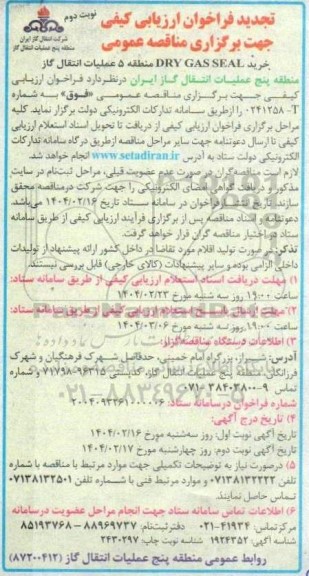 تجدید فراخوان ارزیابی کیفی
نوبت دوم
جهت برگزاری مناقصه عمومی
شرکت انتقال گاز ایران
منطقه پنج عملیات انتقال گاز
خرید DRY GAS SEAL منطقه ۵ عملیات انتقال گاز
منطقه پنج عملیات انتقال گاز ایران درنظردارد فراخوان ارزیابی
کیفی جهت برگزاری مناقصه عمومی «فوق» به شماره
T- ۰۲۴۱۲۵۸ را ازطریق سامانه تدارکات الکترونیکی دولت برگزار نماید. کلیه
مراحل برگزاری فراخوان ارزیابی کیفی از دریافت تا تحویل اسناد استعلام ارزیابی
کیفی تا ارسال دعوتنامه جهت سایر مراحل مناقصه ازطریق درگاه سامانه تدارکات
الکترونیکی دولت ستاد به آدرس www.setadiran.ir انجام خواهد شد.
لازم است مناقصه‌گران درصورت عدم عضویت قبلی، مراحل ثبت‌نام در سایت
مذکور و دریافت گواهی امضای الکترونیکی را جهت شرکت درمناقصه محقق
سازند. تاریخ انتشار فراخوان در سامانه ستاد تاریخ ۱۴۰۴/۰۲/۱۶ می‌باشد
دعوتنامه و اسناد مناقصه پس از برگزاری فرآیند ارزیابی کیفی از طریق سامانه
ستاد در اختیار مناقصه گران قرار خواهد گرفت.
تذکر: در صورت تولید اقلام مورد تقاضا در داخل کشور ارائه پیشنهاد از تولیدات
داخلی الزامی بوده و سایر پیشنهادات (کالای خارجی) قابل بررسی نیستند.
۱) مهلت دریافت اسناد استعلام ارزیابی کیفی از طریق سامانه ستاد:
ساعت ۱۹:۰۰ روز سه شنبه مورخ ۱۴۰۴/۰۲/۲۳
۲) مهلت ارسال پاسخ استعلام ارزیابی کیفی از طریق سامانه ستاد:
ساعت ۱۹:۰۰ روز سه شنبه مورخ ۱۴۰۴/۰۳/۰۶
۳) اطلاعات دستگاه مناقصه‌گزار:
آدرس: شیراز، بزرگراه امام خمینی، حدفاصل شهرک فرهنگیان و شهرک
فرزانگان، منطقه پنج عملیات انتقال گاز، کدپستی ۹۶۳۱۵-۷۱۷۹۸ و شماره
تماس ۹-۳۸۴۰۳۸۰۰-۰۷۱
شماره فراخوان درسامانه ستاد: ۲۰۰۴۰۹۳۳۶۱۰۰۰۰۰۶
۴) تاریخ درج آگهی:
تاریخ آگهی نوبت اول: روز سه‌شنبه مورخ ۱۴۰۴/۰۲/۱۶
تاریخ آگهی نوبت دوم: روز چهارشنبه مورخ ۱۴۰۴/۰۲/۱۷
۵) درصورت نیاز به توضیحات تکمیلی جهت موارد مرتبط با مناقصه با شماره
تلفن ۰۷۱۳۸۱۳۲۲۳۲ و موارد مرتبط فنی با شماره تلفن ۰۷۱۳۸۱۳۲۵۰۱
تماس حاصل نمایند.
۶) اطلاعات تماس سامانه ستاد جهت انجام مراحل عضویت درسامانه
مرکز تماس: ۴۱۹۳۴-۰۲۱ دفتر ثبت‌نام: ۸۸۹۶۹۷۳۷ - ۸۵۱۹۳۷۶۸
شناسه آگهی: ۱۹۲۴۳۵۲ شناسه نوبت چاپ: ۲۴۳۰۲۹۷
روابط عمومی منطقه پنج عملیات انتقال گاز (۸۷۲۰۰۴۱۲)